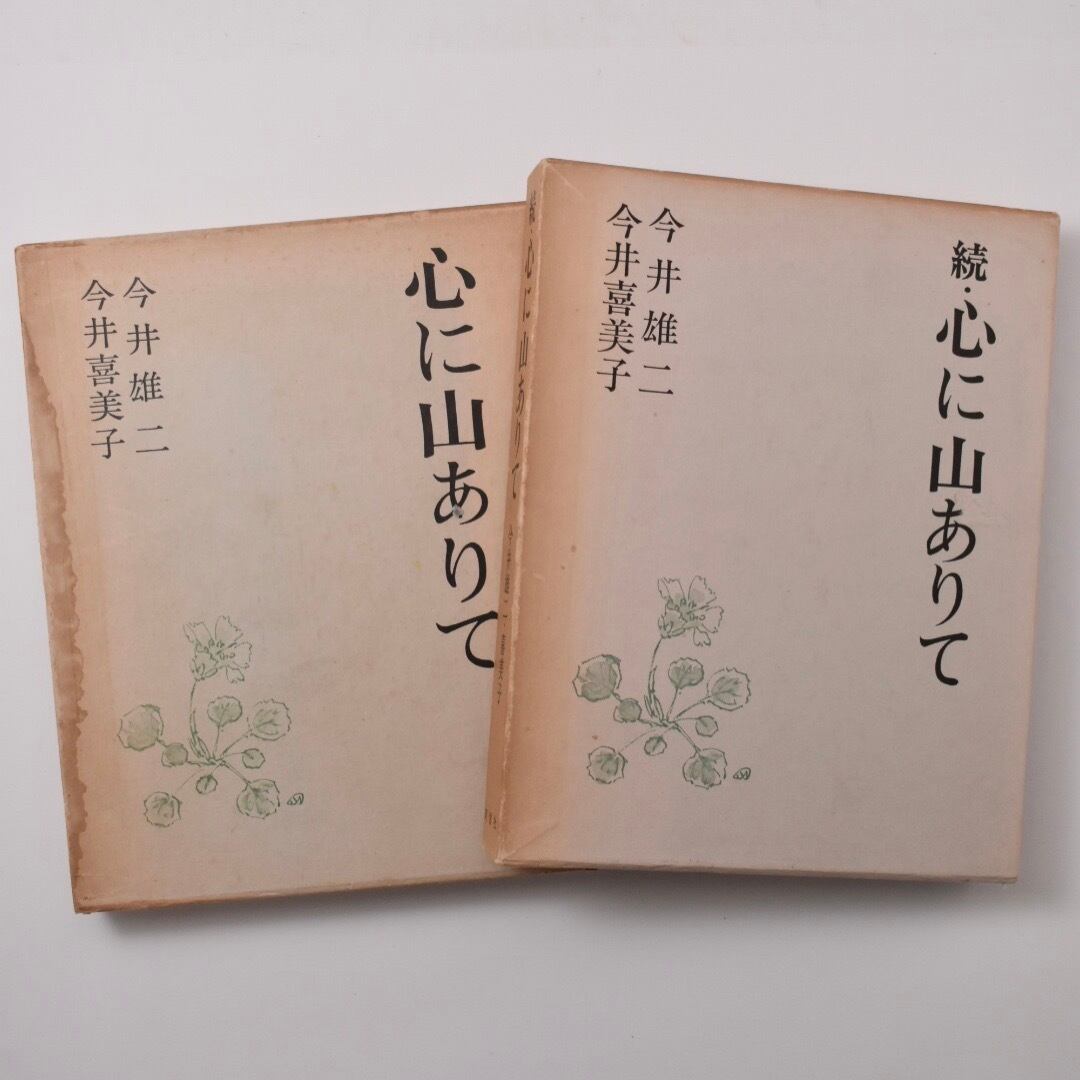 心に山ありて
今井雄二
今井喜美子
続・心に山ありて
今井雄二
今井喜美子
続・心に山ありて
今井雄二・喜美子